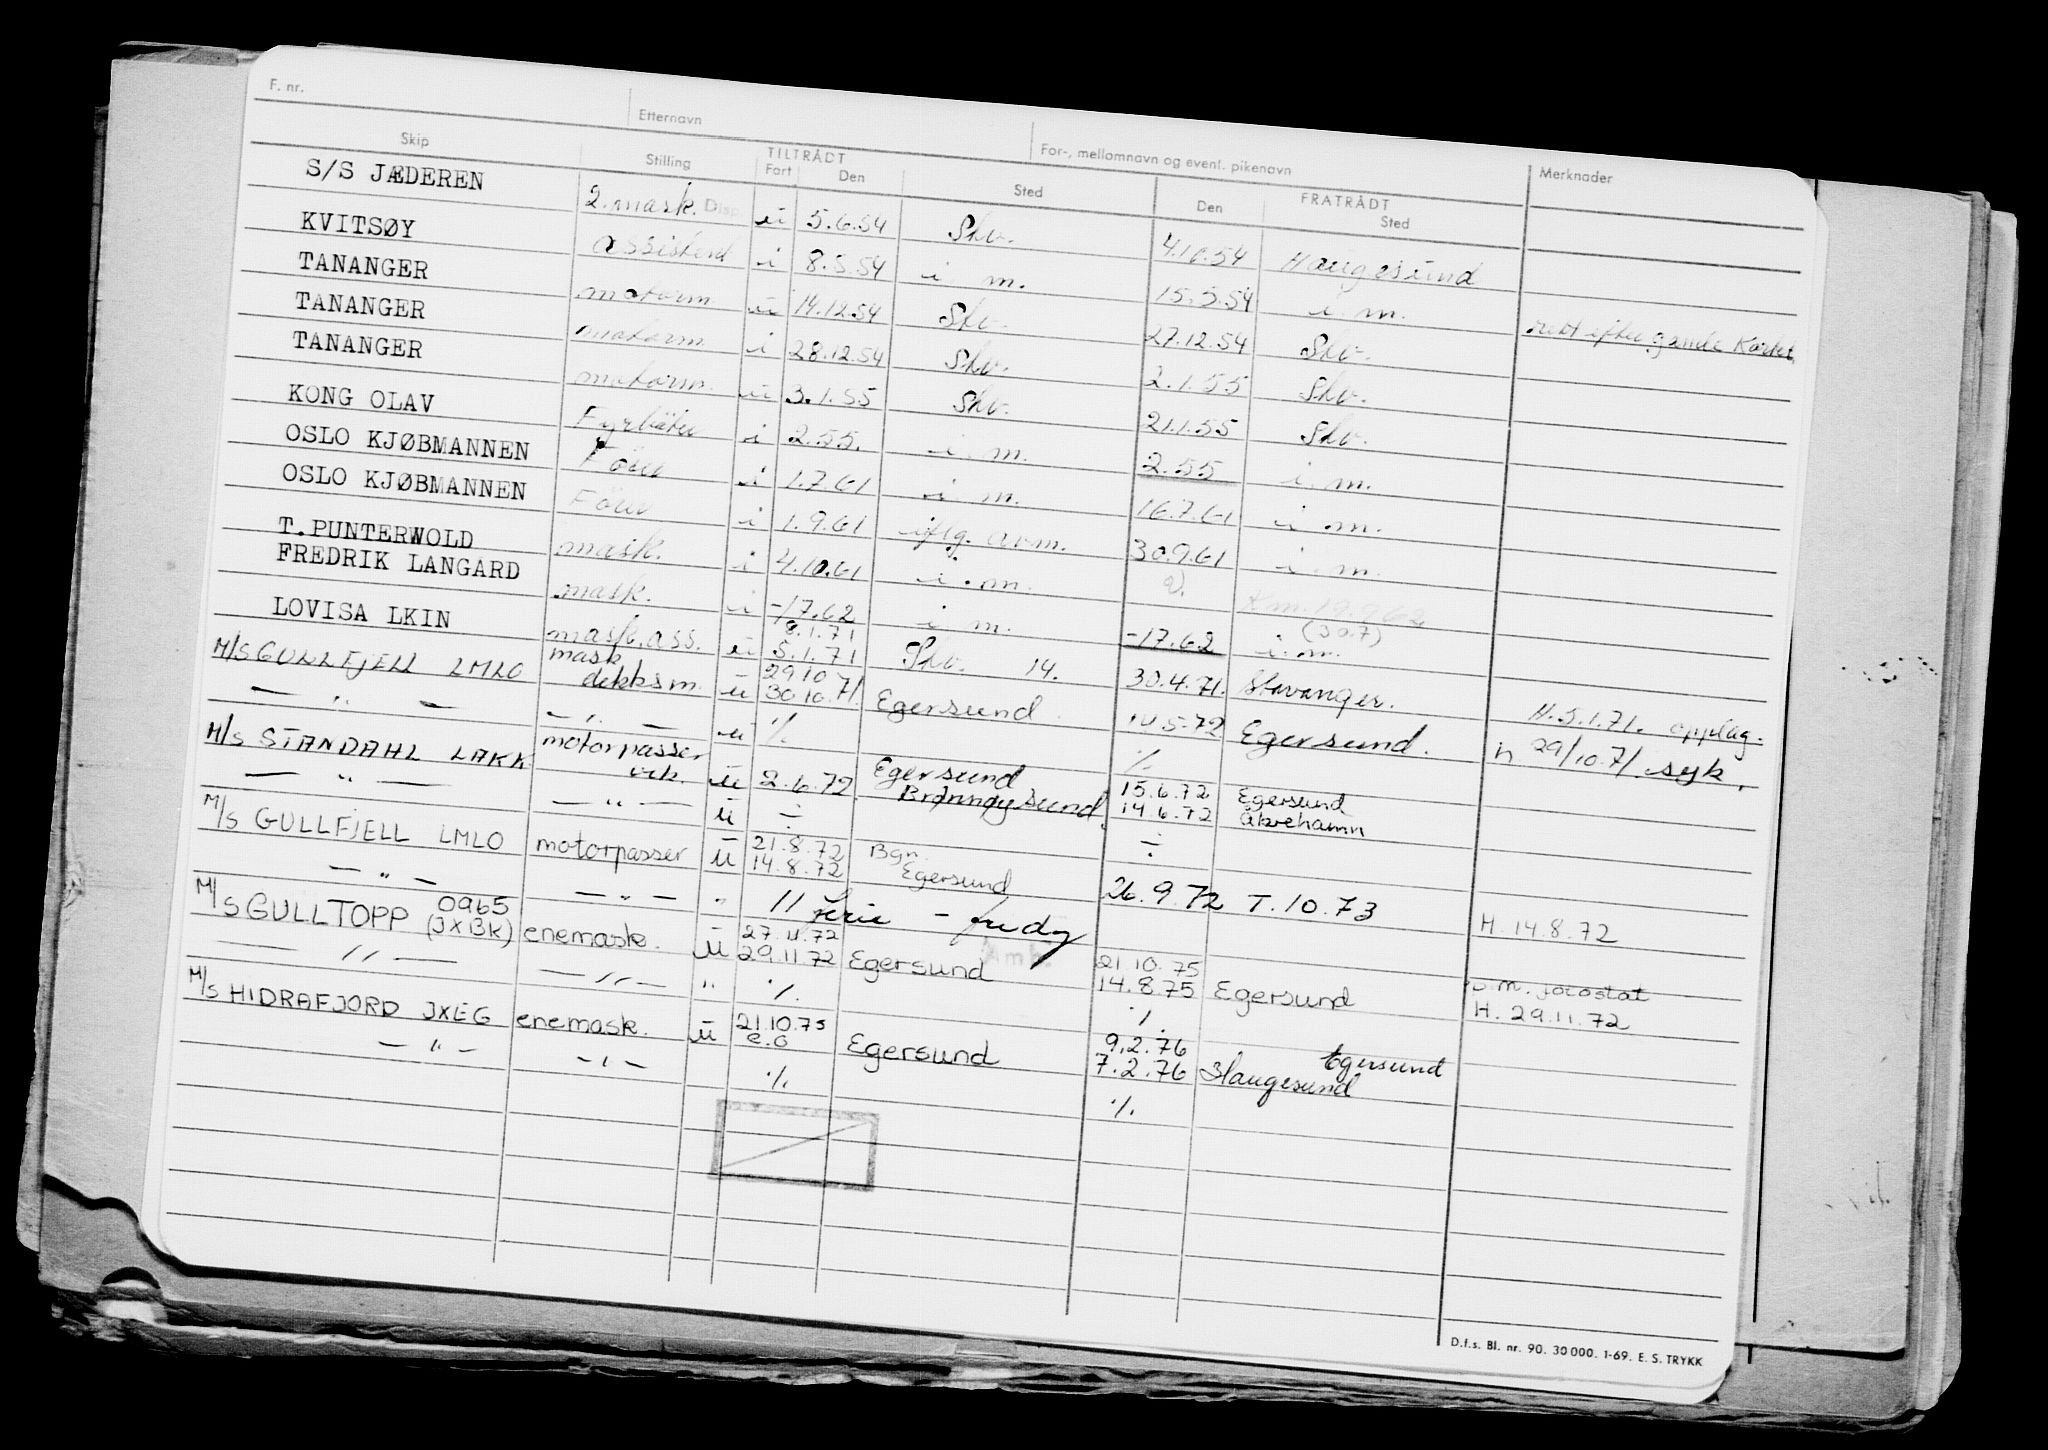 F. nr. Etternavn For-, mellomnavn og event. pikenavn Merknader
Skip Stilling TILTRÅDT Fart Den Sted Den FRATRÅDT Sted
S/S JÆDEREN 2. mask. Disp. u 5.6.54 Shv. 4.10.54 Haugesund
KVITSØY assistent i 8.5.54 i. m. 15.5.54 i. m.
TANANGER motorm u 14.12.54 Shv. 27.12.54 Shv.
TANANGER motorm. i 28.12.54 Shv. 2.1.55 Shv.
TANANGER motorm. u 3.1.55 Shv. 21.1.55 Shv.
KONG OLAV Fyrbøter i 2.55. i. m. 2.55 i. m.
OSLO KJØBMANNEN i 1.7.61 i. m. 16.7.61 i. m.
OSLO KJØBMANNEN i 1.9.61 iflg. 30.9.61 i. m.
T.PUNTERWOLD mask. i 4.10.61 i. m. Rm. 19.9.62
FREDRIK LANGARD mask. i -17.62 i. m. -17.62 (30.7) i. m.
LOVISA LKIN mask. ass. u 8.1.71 5.1.71 Shv. 14. 30.4.71. Stavanger. H. 5.1.71. opplag.
M/S GULLFJELL LMLO mask dekksm. u 29 10 30 10.71. Egersund 14.5.72 Egersund. h 29/10.71 syk.
— " — — " — u % %
M/S STANDAHL LAKK motorpasser vik. u 2.6.72 Egersund Brønnøysund. 15.6.72 14.6.72 Egersund Åkrehamn
— " — — " — u ÷ ÷
M/S GULLFJELL LMLO motorpasser u 21.8.72 14.8.72 Bgn. Egersund 26.9.72 T. 10.73 H. 14.8.72
— " — — " — " 11 ferie -
M/S GULLTOPP 0965 (JXBK) enemask. u 27.11.72 29.11.72 Egersund 21.10.75 14.8.75 Egersund H. 29.11.72
— " — — " — " % %
M/S HIDRAFJORD JXEG enemask. u 21.10.75 e.o Egersund 9.2.76 7.2.76 Egersund Haugesund
— " — — " — % %
D.f.s. Bl. nr. 90. 30 000. 1-69. E. S. TRYKK